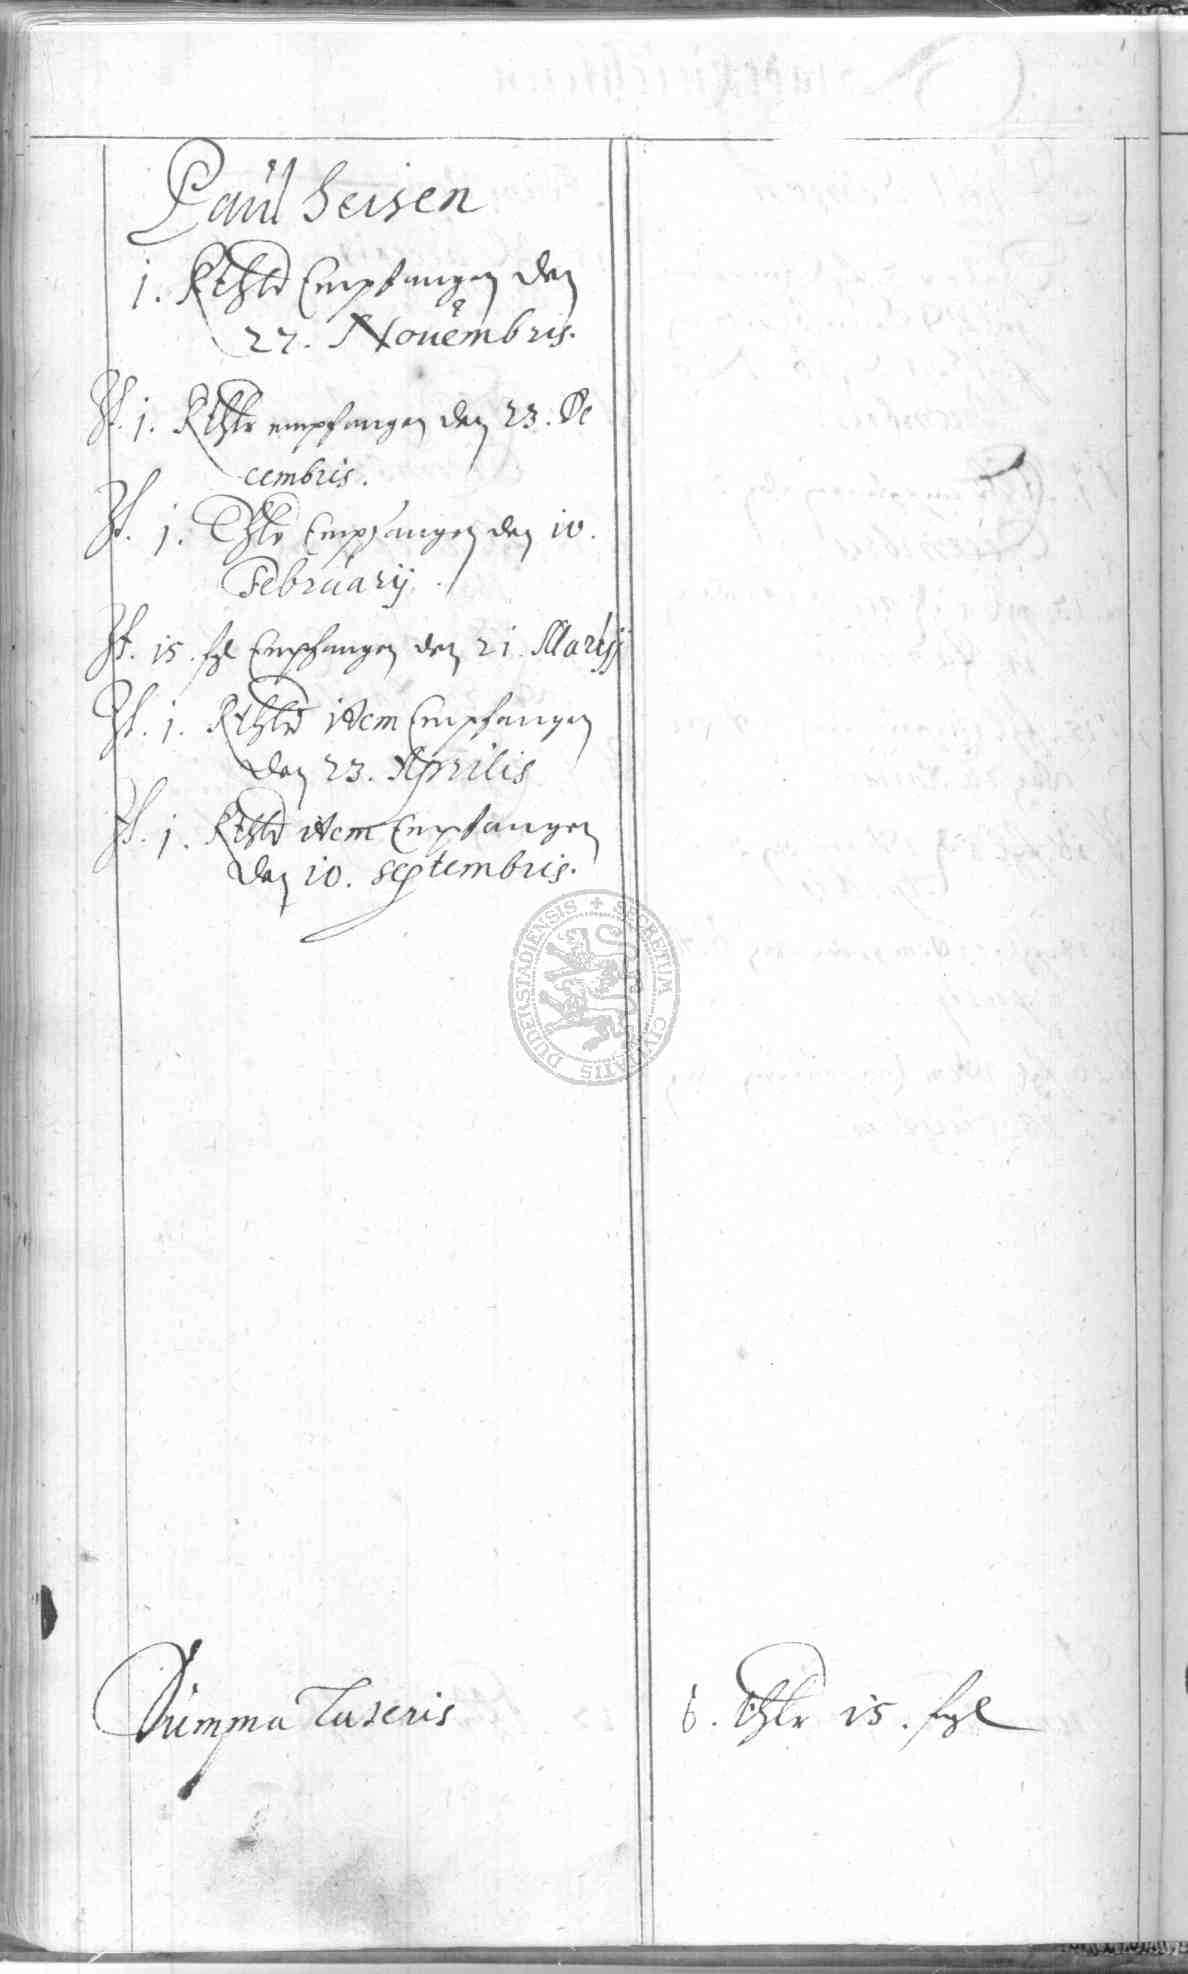 Paül Seisen
1. Rthlr Empfangen den
27. Nouembris.
It. 1. Rthlr empfangen den 23. De
cembris.
It. 1. Thlr Empfangen den 10.
Februarij.
It. 15. fgl Empfangen den 21. Martij
It. 1. Rthlr item Empfangen
den 23. Aprilis
It. 1. Rthlr item Empfangen
den 10. Septembris.
DUDERSTADIENSIS + SECRETUM CIVITATIS
Summa Lateris 6. Thlr 15. fgl